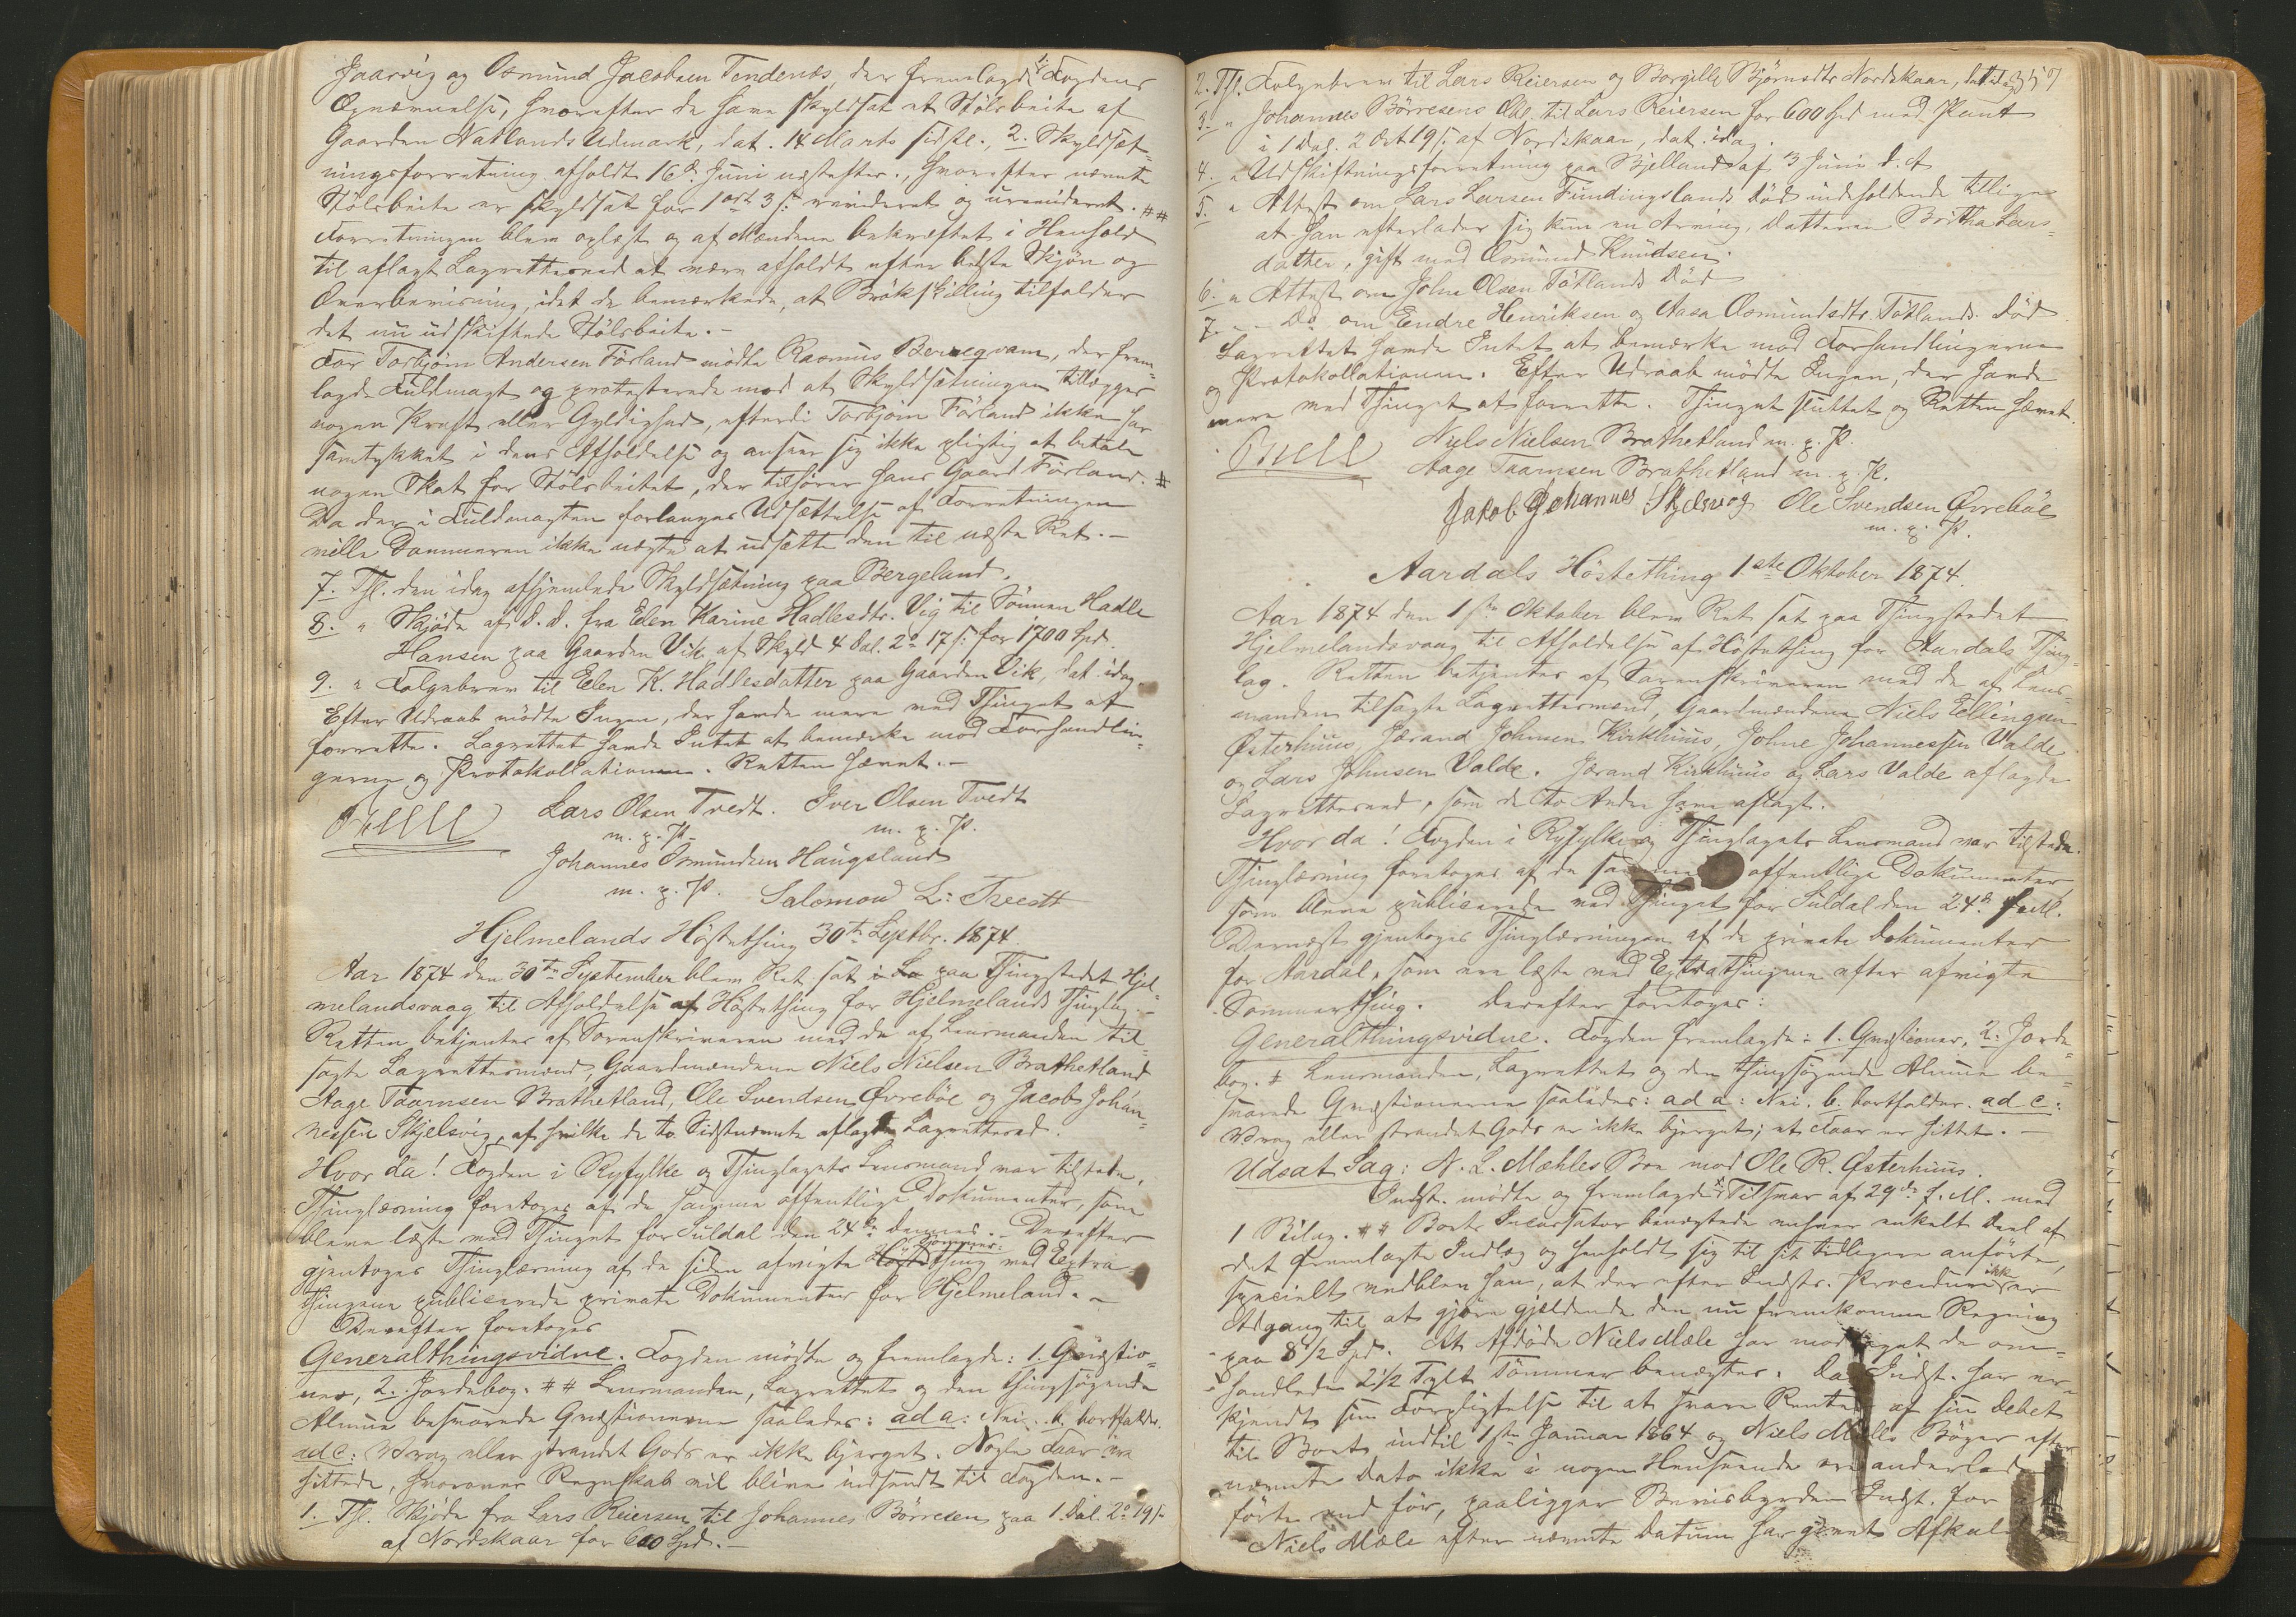 Jaarvig og Osmund Jacobsen Tendenæs, der fremlagde Fogdens
Opnævnelse, hvorefter de have skyldsat et Stølsbeite af
Gaarden Natlands Udmark, dat. 14 Marts sidstl., 2. Skyldsæt-
ningsforretning afholdt 16de Juni næstefter, hvorefter nævnte
Stølsbeite er skyldsat for 1 ort 3 s. revideret og urevideret. ##
Forretningen blev oplæst og af Mændene bekræftet i Henhold
til aflagt Lagrettesed at være afholdt efter bedste Skjøn og
Overbeviisning, idet de bemærkede, at Brøkskilling tilfalder
det nu udskiftede Stølsbeite.-
For Torbjørn Andersen Førland mødte Rasmus Berseqvam, der frem-
lagde Fuldmagt og protesterede mod at Skyldsætningen tillægges
nogen Kraft eller Gyldighed, efterdi Torbjørn Førland ikke har
samtykket i dens Afholdelse og anseer sig ikke pligtig at betale
nogen Skat for Stølsbeitet, der tilhører hans Gaard Førland. #
Da der i Fuldmagten forlanges Udsættelse af Forretningen
vilde Dommeren ikke nægte at udsætte den til næste Ret.-
7. Thl. den idag afhjemlede Skyldsætning paa Bergeland.
8. " Skjøde af D.D. fra Elen Karine Hadlesdtr. Vig til Sønnen Hadle
Hansen paa Gaarden Vik af Skyld 4 Dal. 2 o 17 s. for 1700 Spd.
9. " Følgebrev til Elen K. Hadlesdatter paa Gaarden Vik, dat. idag.
Efter Udraab mødte Ingen, der havde mere ved Thinget at
forrette. Lagrettet havde Intet at bemærke mod Forhandlin-
gerne og Protokollationen. Retten hævet.-
Lars Olsen Tvedt. Iver Olsen Tvedt
m. p. P. m. p. P.
Johannes Osmundsen Haugsland
m. p. P. Salomon L: Treedt
Hjelmelands Høstething 30te Septbr. 1874.
Aar 1874 den 30te September blev Ret sat i La paa Thingstedet Hjel-
melandsvaag til Afholdelse af Høstething for Hjelmelands Thinglag.-
Retten betjentes af Sorenskriveren med de af Lensmanden til-
sagte Lagrettesmænd, Gaardmændene Niels Nielsen Brathetland
Aage Taamsen Brathetland, Ole Svendsen Øvrebøe og Jacob Johan-
nessen Skjelsvig, af hvilke de to Sidstnævnte aflagde Lagrettesed.
Hvor da! Fogden i Ryfylke og Thinglagets Lensmand var tilstede,
Thinglæsning foretoges af de samme offentlige Dokumenter, som
bleve læste ved Thinget for Suldal den 24de dennes.- Derefter
gjentoges Thinglæsning af de siden afvigte Høstething Sommer- ved Extra
thingene publicerede private Dokumenter for Hjelmeland.-
Derefter foretoges
Generalthingsvidne. Fogden mødte og fremlagde: 1. Qvæstio-
ner, 2. Jordebog. ## Lensmanden, Lagrettet og den thingsøgende
Almue besvarede Qvæstionerne saaledes: ad a: Nei. b. bortfalder.
ad c: Vrag eller strandet Gods er ikke bjerget. Nogle Faar ere
hittede, hvorover Regnskab vil blive indsendt til Fogden.-
1. Thl. Skjøde fra Lars Reiersen til Johannes Børresen paa 1 Dal. 2 o 19 s.
af Nordskaar for 600 Spd.-
2. Thl. Følgebrev til Lars Reiersen og Borgille Bjørnsdtr. Nordskaar, dat. idag 357
3. " Johannes Børresens Obl. til Lars Reiersen for 600 Spd med Pant
i 1 Dal. 2 Ort 19 s. af Nordskaar, dat. idag.
4. " Udskiftningsforretning paa Bjelland af 3 Juni d. A.
5. " Attest om Lars Larsen Fundingslands Død indeholdende tillige
at han efterlader sig kun en Arving, Datteren Britha Lars-
datter, gift med Osmund Knudsen.
6. " Attest om John Olsen Tøtlands Død
7. - - Do om Endre Henriksen og Aasa Osmundsdtr. Tøtlands Død
Lagrettet havde Intet at bemærke mod Forhandlingerne
og Protokollationen. Efter Udraab mødte Ingen, der havde
mere ved Thinget at forrette. Thinget sluttet og Retten hævet.
Niels Nielsen Brathetland m. p. P.
Aage Taamsen Brathetland m. p. P.
Jakob Johannes Skjelsvog Ole Svendsen Øvrebøe
m. p. P.
Aardals Høstething 1ste Oktober 1874.
Aar 1874 den 1ste Oktober blev Ret sat paa Thingstedet
Hjelmelandsvaag til Afholdelse af Høstething for Aardals Thing-
lag. Retten betjentes af Sorenskriveren med de af Lens-
manden tilsagte Lagrettesmænd, Gaardmændene Niels Ellingsen
Østerhuus, Jærand Johnsen Kirkhuus, Johne Johannessen Valde
og Lars Johnsen Valde. Jærand Kirkhuus og Lars Valde aflagde
Lagrettesed, som de to Andre have aflagt.
Hvor da! Fogden i Ryfylke og Thinglagets Lensmand var tilstede.
Thinglæsning foretoges af de samme offentlige Dokumenter
som bleve publicerede ved Thinget for Suldal den 24de f. M.
Dernæst gjentoges Thinglæsningen af de private Dokumenter
for Aardal, som ere læste ved Extrathingene efter afvigte
Sommerthing. Derefter foretoges:
Generalthingsvidne. Fogden fremlagde: 1. Qvæstioner, 2. Jorde-
bog. # Lensmanden, Lagrettet og den thingsøgende Almue be-
svarede Qvæstionerne saaledes: ad a: Nei. b. bortfalder. ad c:
Vrag eller strandet Gods er ikke bjerget; et Faar er hittet.-
Udsat Sag: N. L. Mæhles Boe mod Ole R. Østerhuus.
Indst. mødte og fremlagde Tilsvar af 29de f. M. med
1 Bilag. ## Boets Incassator benægtede enhver enkelt Deel af
det fremlagte Indlæg og henholdt sig til sit tidligere anførte,
specielt vedblev han, at der efter Indst. Procedure ikke er
Adgang til at gjøre gjældende den nu fremkomne Regning
paa 8 1/2 Spd. At Afdøde Niels Mæle har modtaget de om-
handlede 2 1/2 Tylt Tømmer benægtes. Da Indst. har er-
kjendt sin Forpligtelse til at svare Renter af sin Debet
til Boet indtil 1ste Januar 1864 og Niels Mæles Bøger efter
nævnte Dato ikke i nogen Henseende ere anderledes
førte end før, paaligger Bevisbyrden Indst. for at
Niels Mæle efter nævnte Datum har givet Afkald